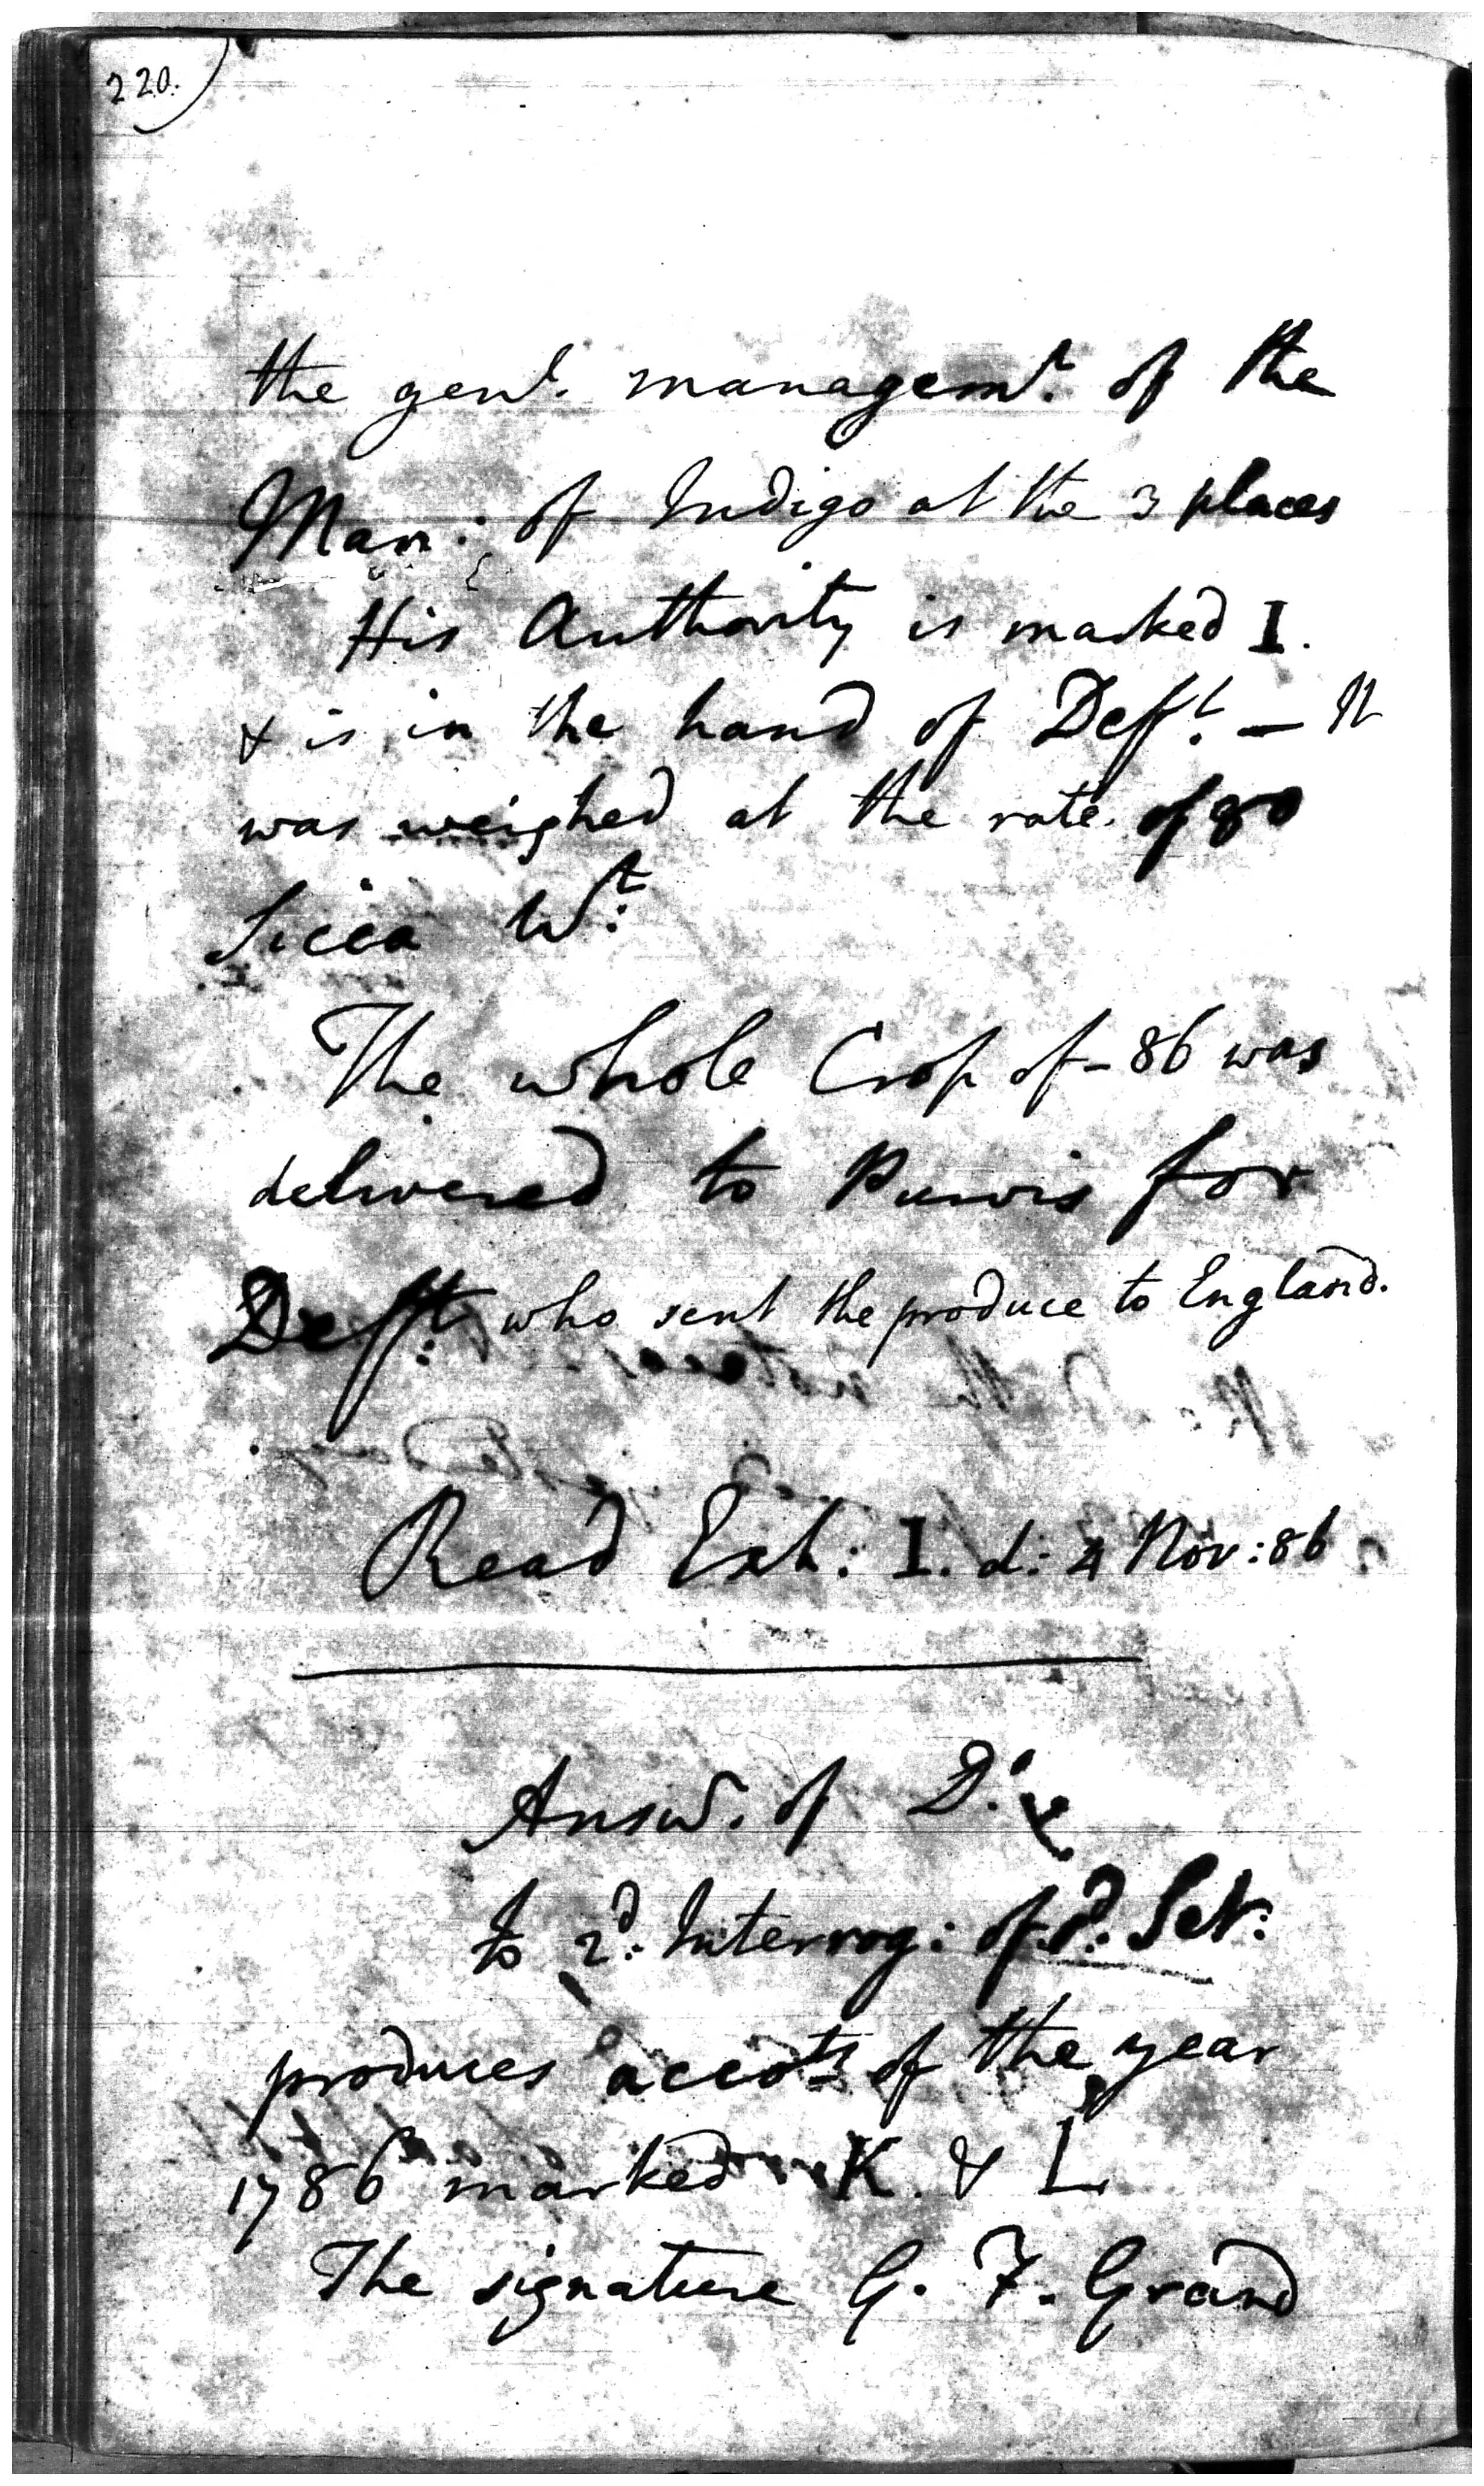 220.
the genl. managemt. of the
Man: of Indigo at the 3 places
His Authority is marked I.
& is in the hand of Defft. — It
was weighed at the rate of 80
Sicca Wt:
The whole Crop of - 86 was
delivered to Purvis for
Defft: who sent the produce to England.
Read Exh: I. d: 4 Nov: 86
Answ. of D:
to 2d: Interrog: of d: Set:
produces accots of the year
1786 marked K. & L
The signature G. F. Grand